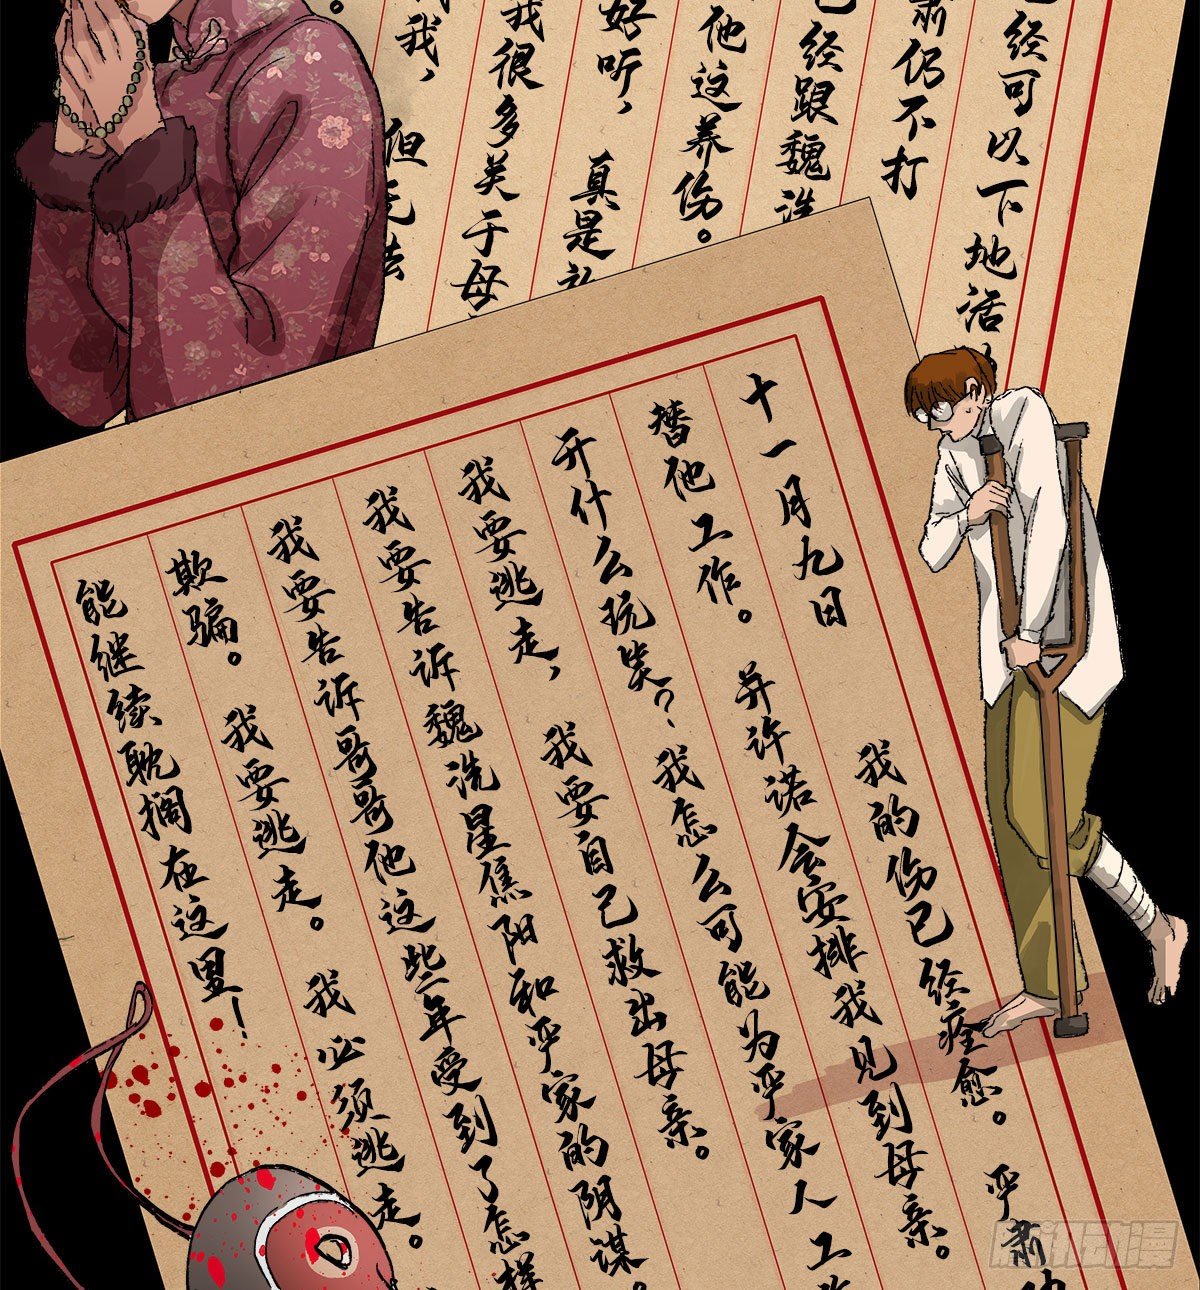 经可以下地活
肃仍不打
已经跟魏洗
他这养伤。
好听,真是
我很多关于母
我,但无法
十一月九日 我的伤已经痊愈。乎肃
替他工作。并许诺会安排我见到母亲。
开什么玩笑?我怎么可能为乎家人工
我要逃走,我要自己救出母亲。
我要告诉魏洗星焦阳和乎家的阴谋。
我要告诉哥哥他这些年受到了怎样
欺骗。我要逃走。我必须逃走。
能继续耽搁在这里!
腾讯动漫